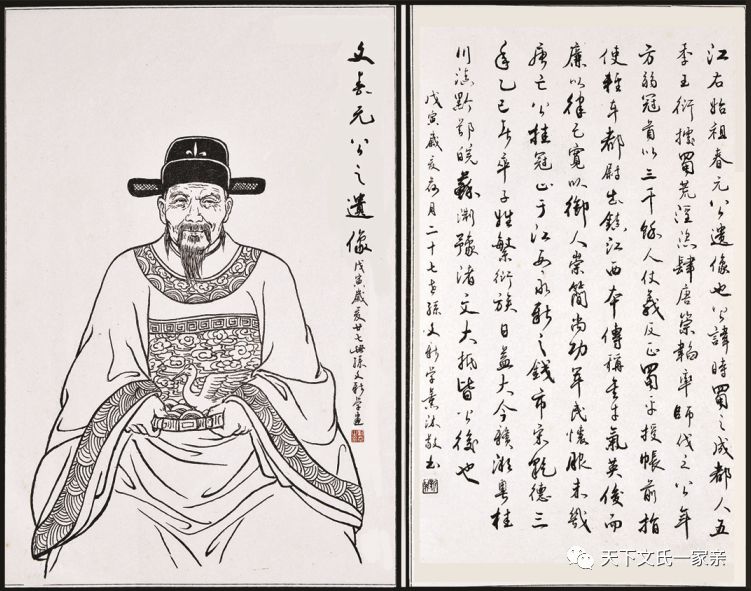 文春元公之遺像
戊寅歲夏廿七世孫文新學畫
江右始祖春元公遺像也公諱時蜀之成都人五
季王衍據蜀荒淫恣肆唐崇韜率師伐之公年
方弱冠首以三千餘人仗義反正蜀平授帳前指
使輕車都尉出鎮江西本傳稱其才氣英俊而
廉以律己寬以御人崇簡尚功軍民懷服未幾
唐亡公挂冠止于江西永新之錢市宋乾德三
年乙巳卒子姓繁衍族日益大今贛湘粵桂
川滇黔鄂皖蘇浙豫諸文大抵皆公後也
戊寅歲夏荷月二十七世孫文新學薰沐敬書
天下文氏一家亲